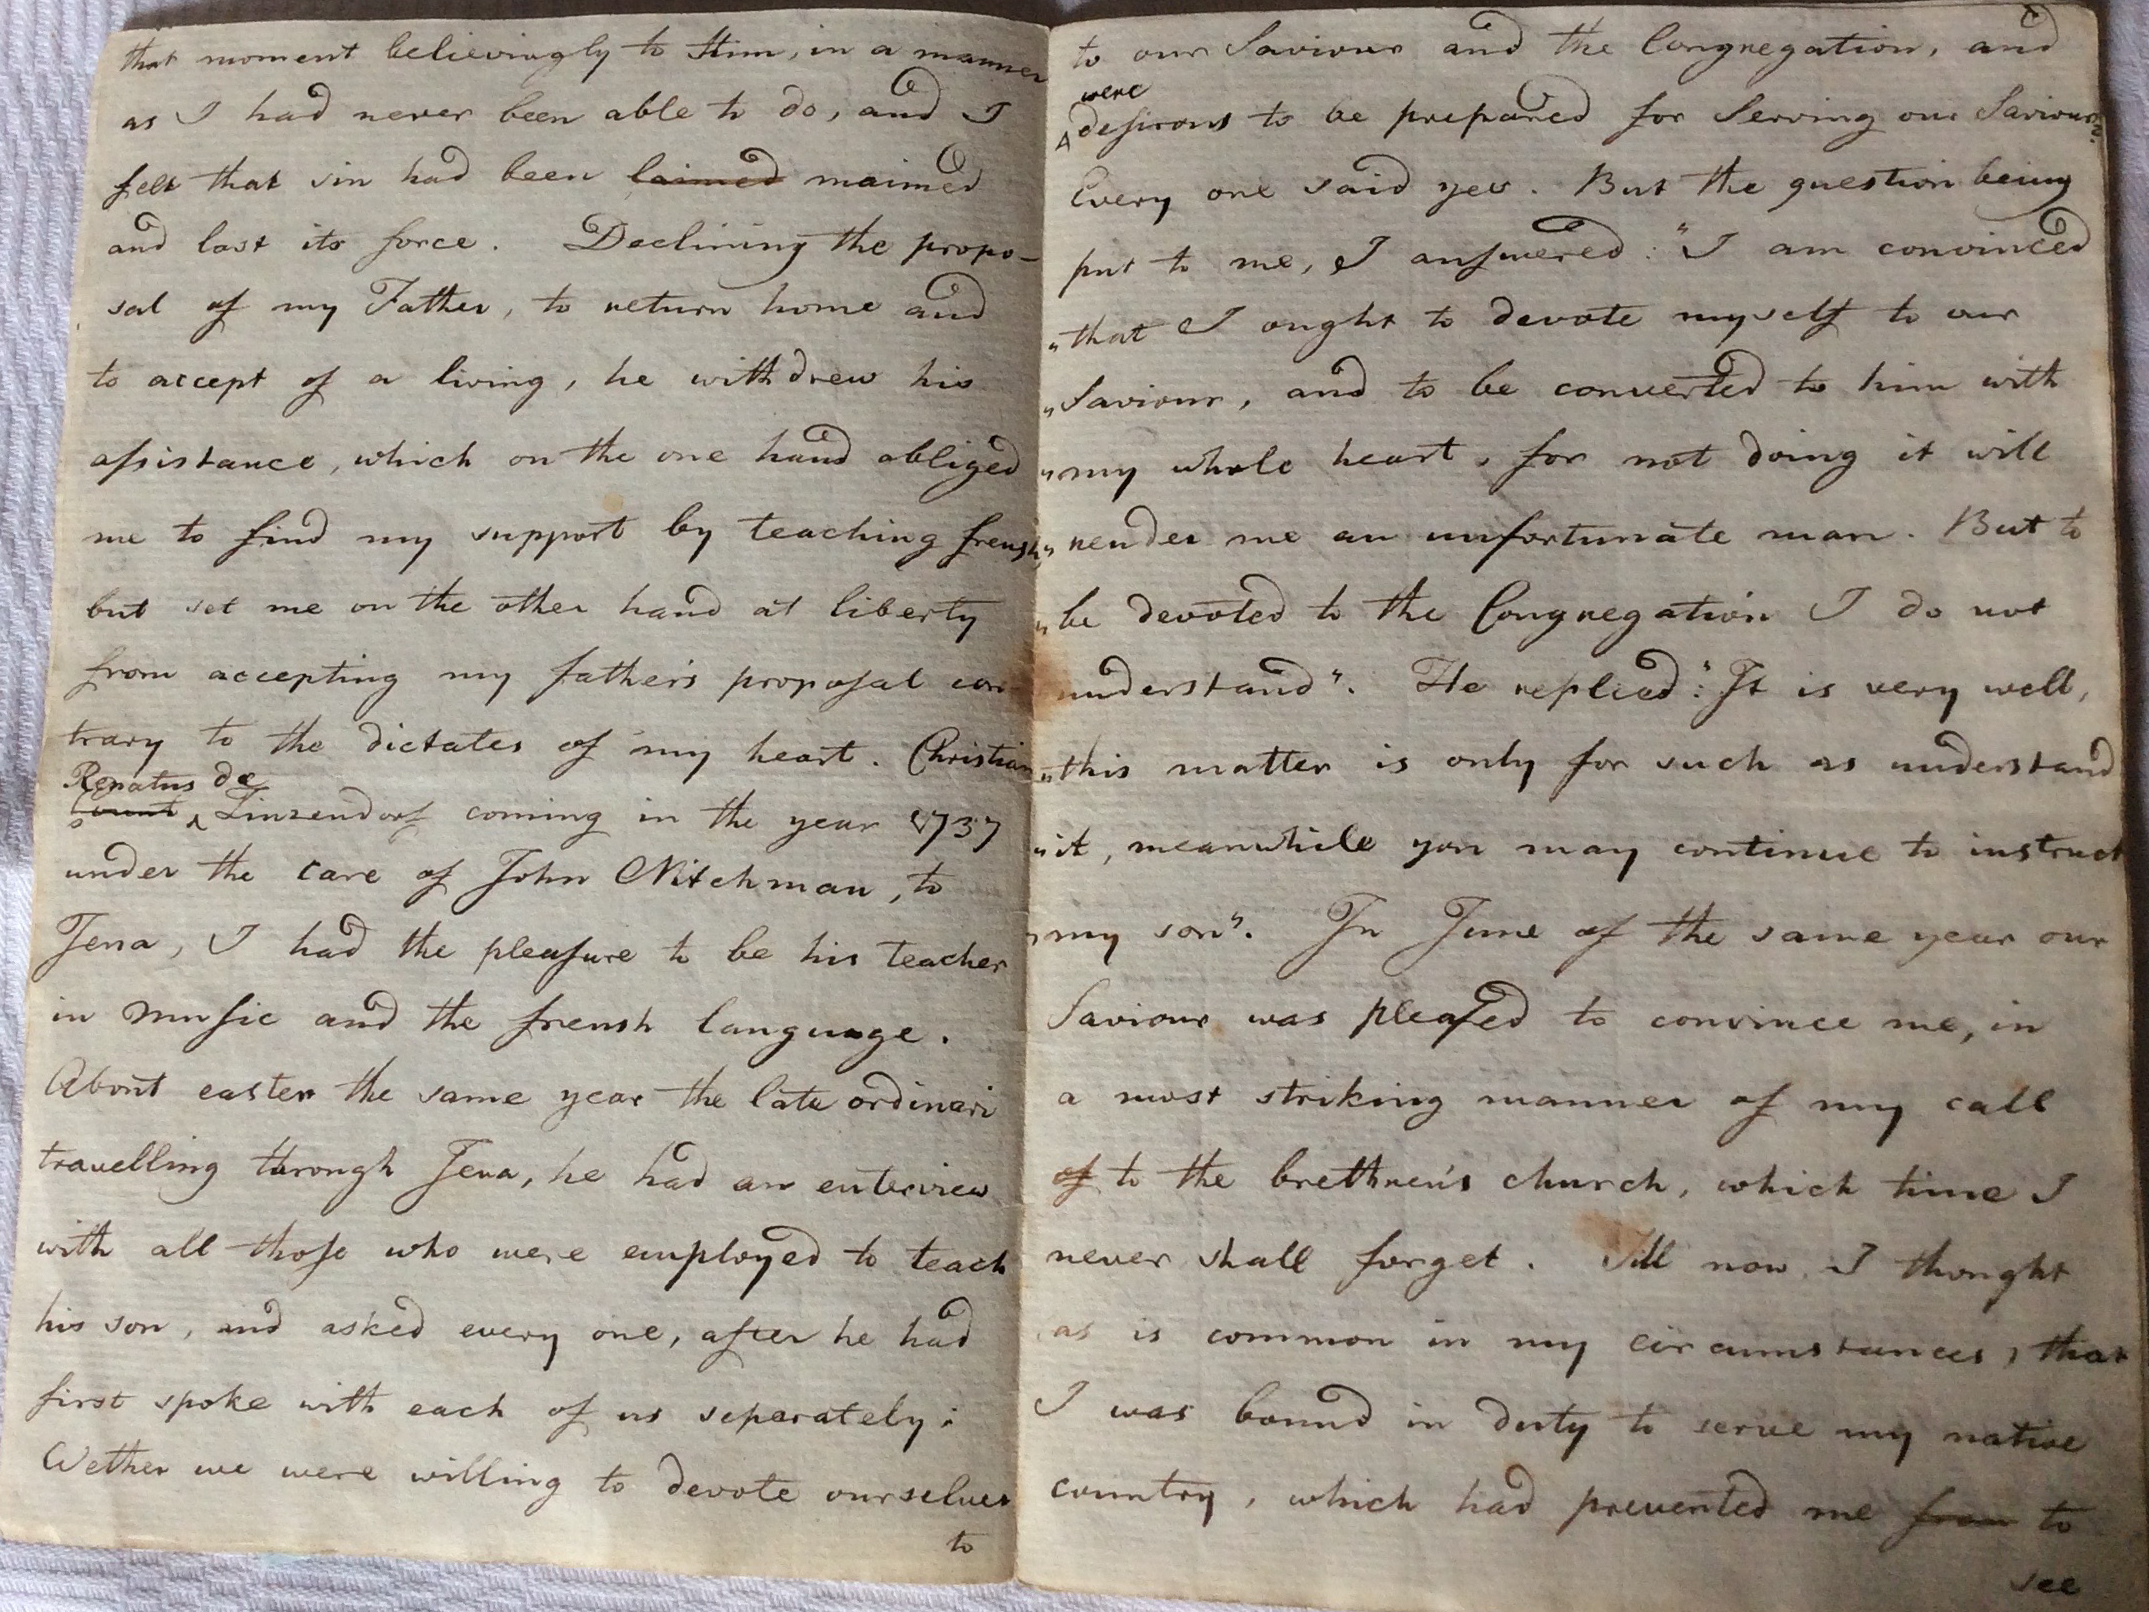 that moment believingly to Him, in a manner
as I had never been able to do, and I
felt that sin had been laimed maimed
and lost its force. Declining the propo-
sal of my Father, to return home and
to accept of a living, he withdrew his
assistance, which on the one hand obliged
me to find my support by teaching frensh
but set me on the other hand at liberty
from accepting my father's proposal con-
trary to the dictates of my heart. Christian
Renatus de
Count ^ Zinzendorf coming in the year 1737
under the care of John Nitchman, to
Jena, I had the pleasure to be his teacher
in Music and the frensh language.
About easter the same year the late ordinari
travelling through Jena, he had an enterview
with all those who were employed to teach
his son, and asked every one, after he had
first spoke with each of us separately:
Wether we were willing to devote ourselves
to
to our Saviour and the Congregation, and
were
^ desirous to be prepared for Serving our Saviour?
Every one said yes. But the question being
put to me, I answered: "I am convinced
"that I ought to devote myself to our
"Saviour, and to be converted to him with
"my whole heart, for not doing it will
"render me an unfortunate man. But to
"be devoted to the Congregation I do not
understand". He replied: "It is very well,
"this matter is only for such as understand
"it, meanwhile you may continue to instruct
"my son". In June of the same year our
Saviour was pleased to convince me, in
a most striking manner of my call
of to the brethren's church, which time I
never shall forget. Till now I thought
as is common in my circumstances, that
I was bound in duty to serve my native
country, which had prevented me from to
see